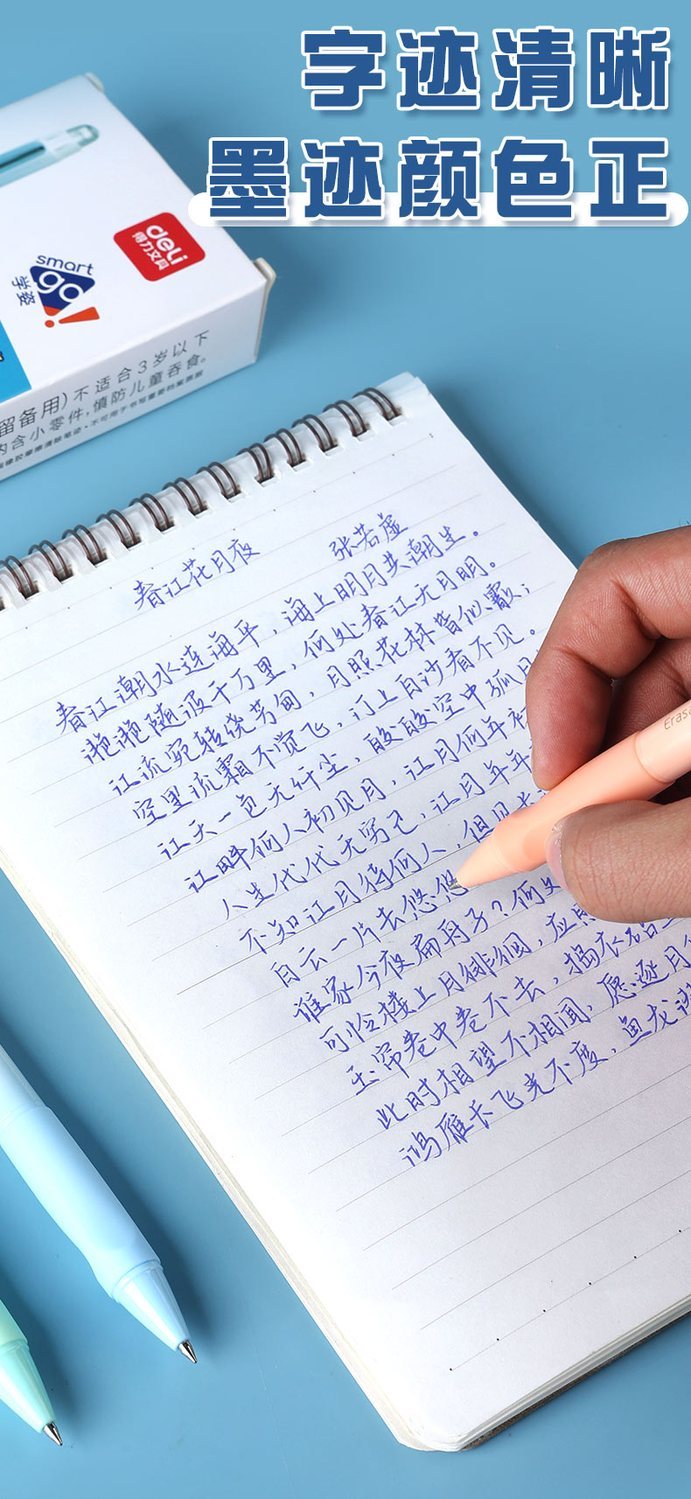 字迹清晰
墨迹颜色正
deli
得力文具
smart
go!
学姿
留备用)不适合3岁以下
内含小零件,慎防儿童吞食。
春江花月夜 张若虚
春江潮水连海平，海上明月共潮生。
滟滟随波千万里，何处春江无月明。
江流宛转绕芳甸，月照花林皆似霰；
空里流霜不觉飞，汀上白沙看不见。
江天一色无纤尘，皎皎空中孤月
江畔何人初见月，江月何年初
人生代代无穷已，江月年年
不知江月待何人，但见长
白云一片去悠悠
谁家今夜扁舟子？何处
可怜楼上月徘徊，应照
玉帘卷中卷不去，捣衣砧上
此时相望不相闻，愿逐月
鸿雁长飞光不度，鱼龙潜
Eras